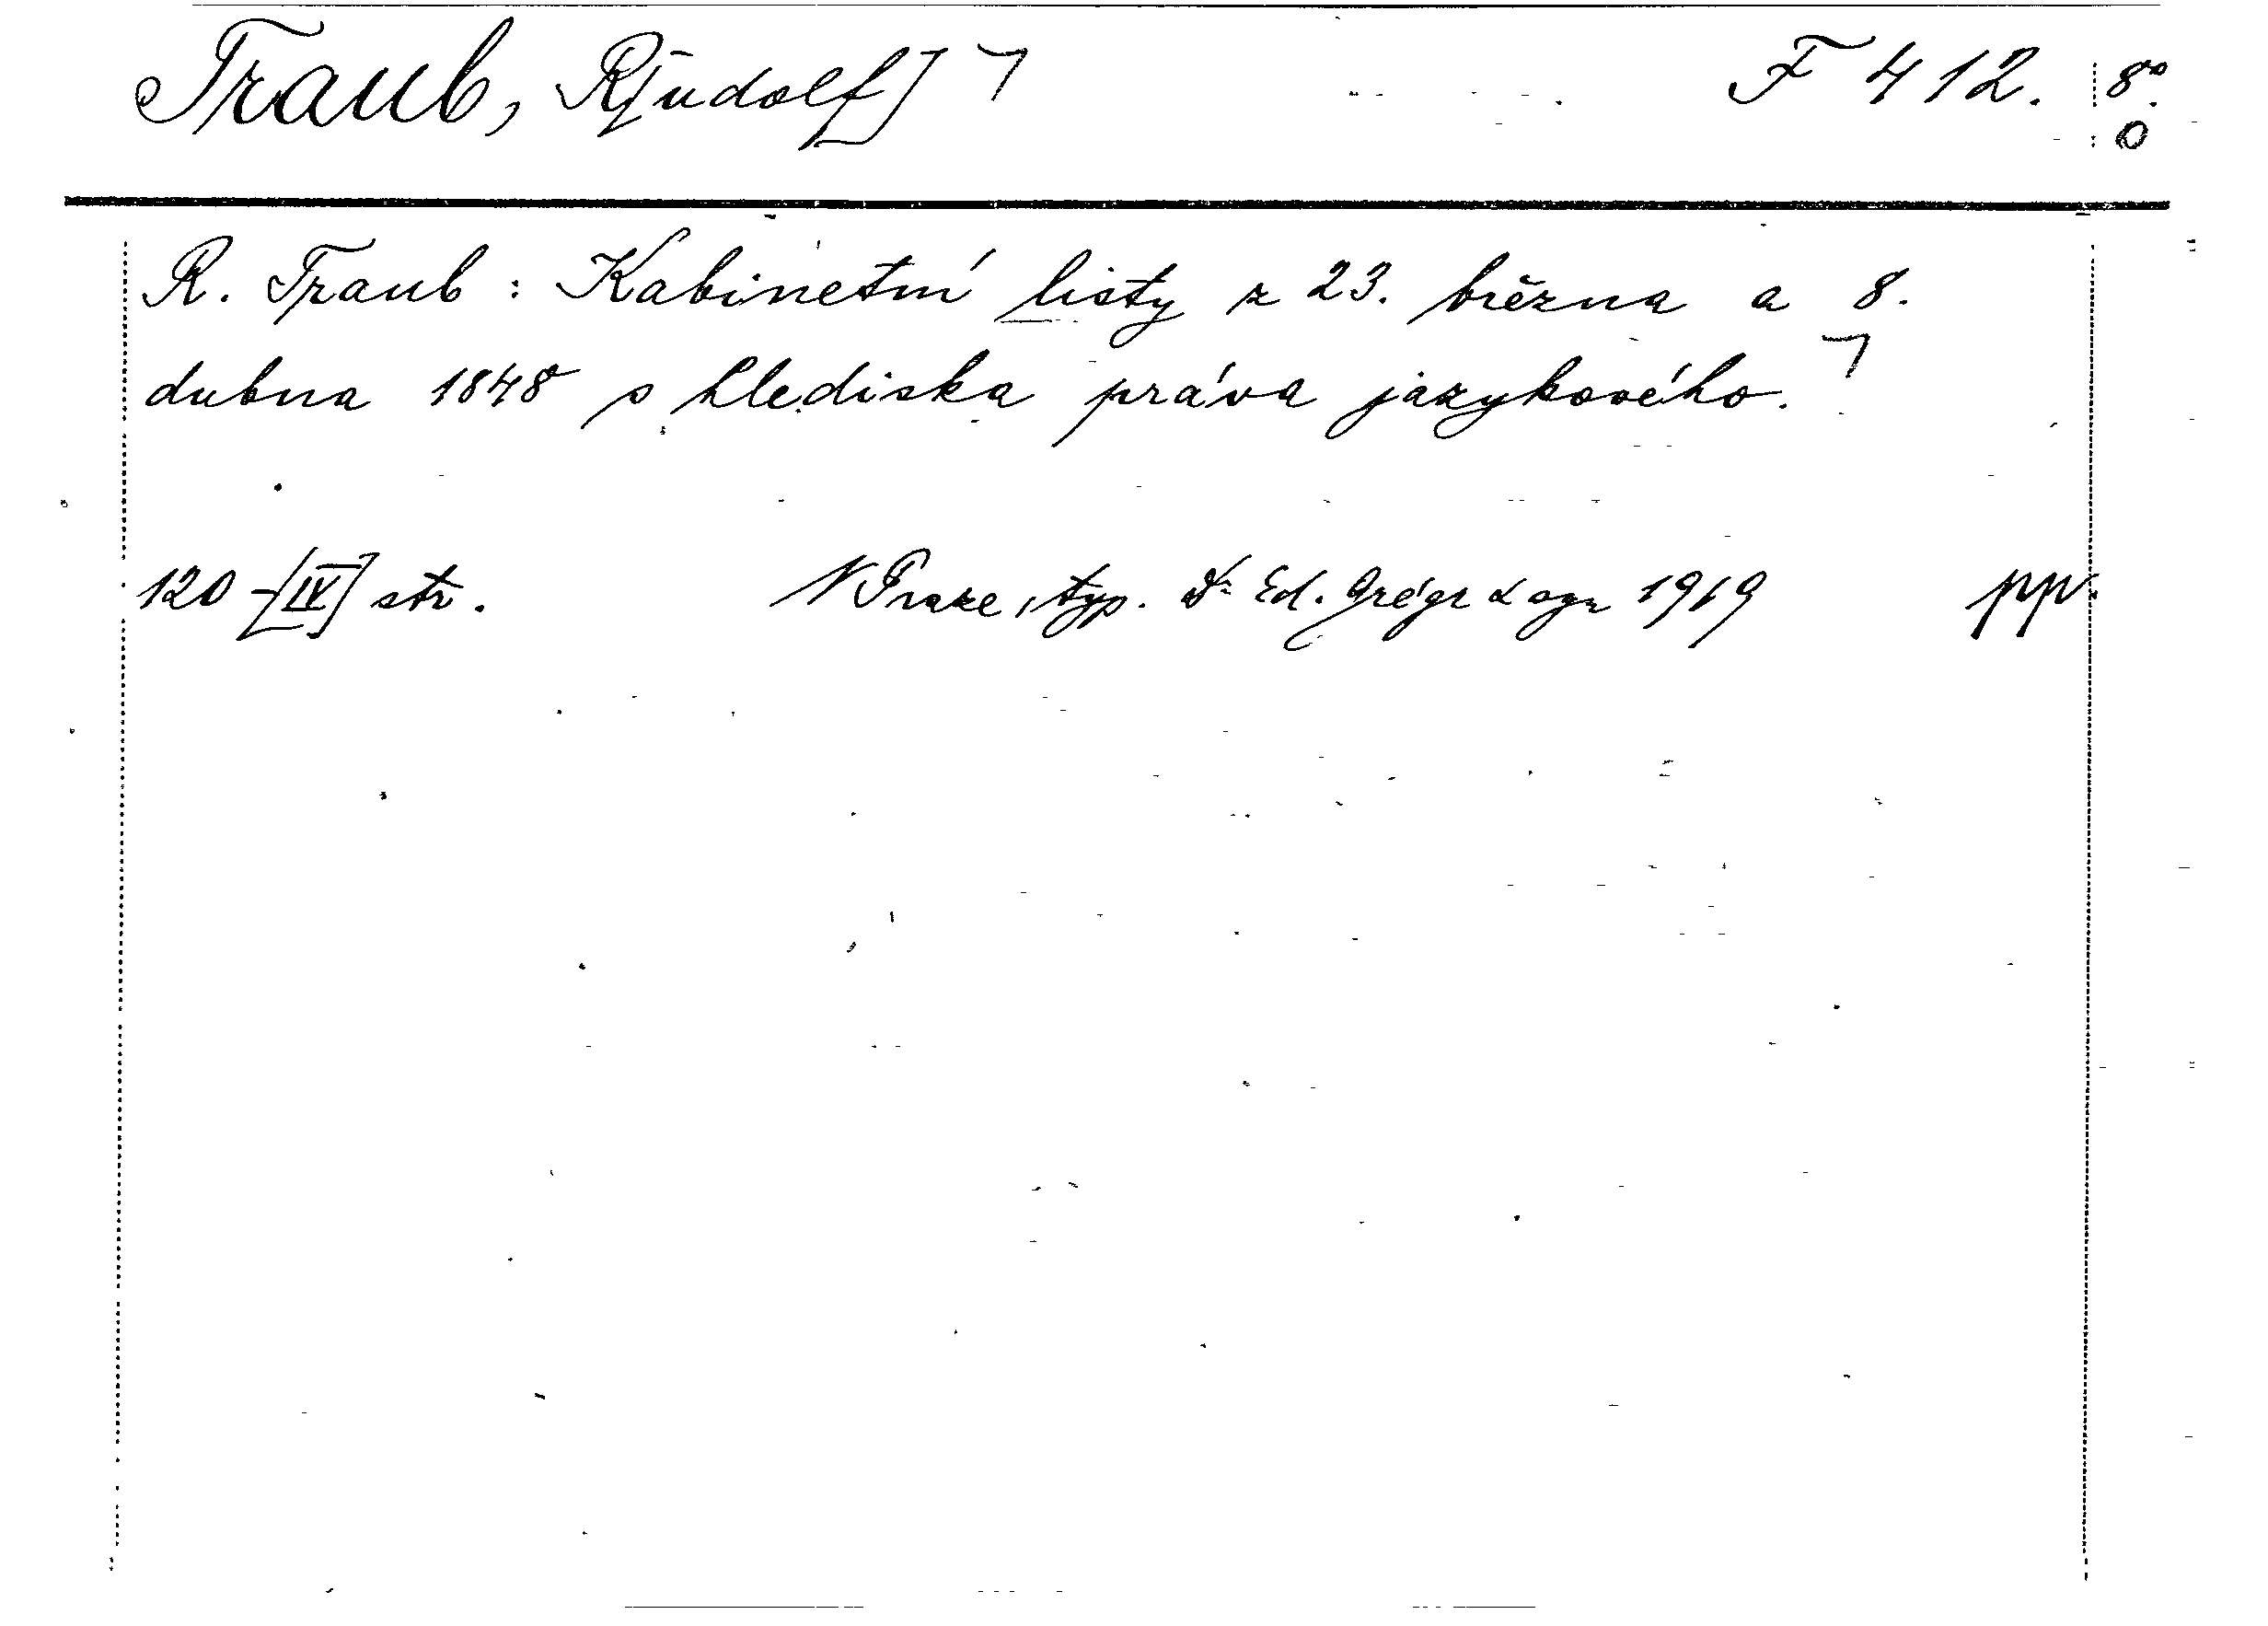 Traub, R[udolf] ¬ F 412. 8°.
0
R. Traub: Kabinetní listy z 23. března a 8.
dubna 1848 s hlediska práva jazykového. ¬
120-[IV] str. V Praze, typ. Dr Ed. Grégr a syn 1919 pp.